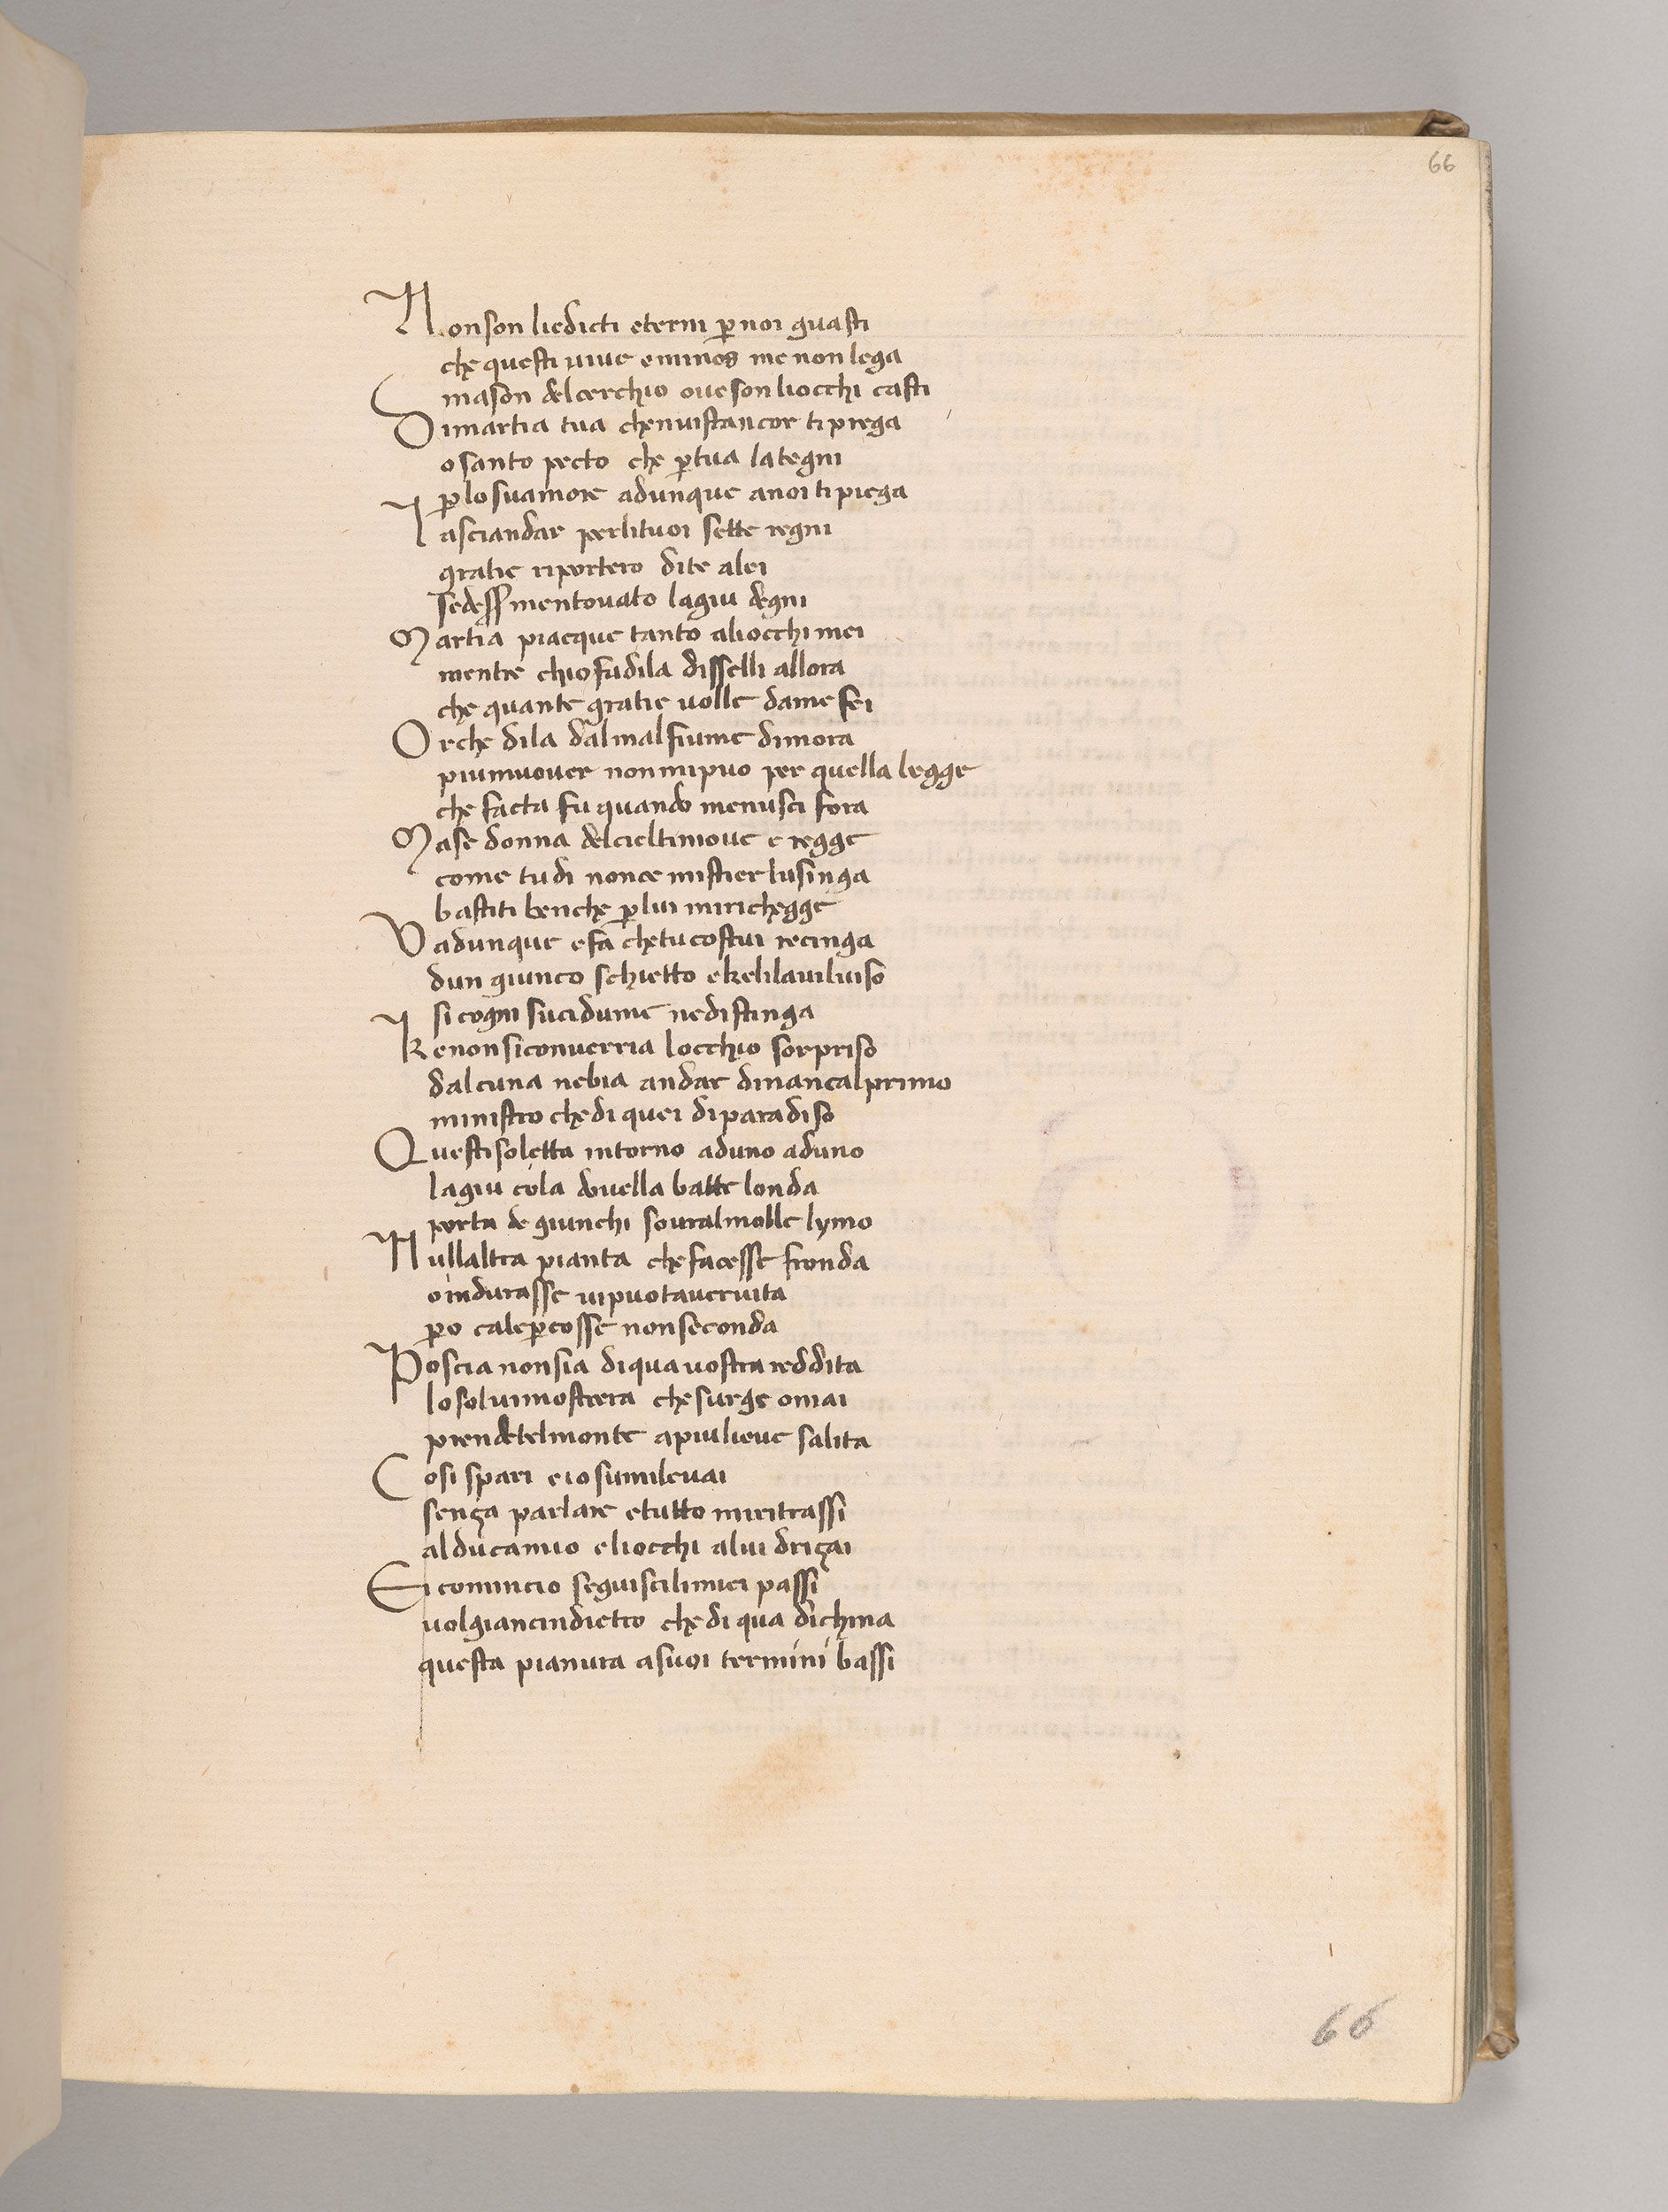 66
Non son liedicti eterni ꝑ noi guasti
che questi uiue eminos me non lega
mason del cerchio oue son liocchi casti
Dimartia tua chenuistancor ti priega
o santo pecto che ꝑ tua la tegni
ꝑ lo suamore adunque anoi ti piega
Lasciandar perlituoi sette regni
gratie riportero dite alei
sedess mentouato lagiu degni
Martia piacque tanto aliocchi mei
mentre chio fudila disselli allora
che quante gratie uolle dame fei
Orche dila dalmal fiume dimora
piumuouer nonmipuo per quella legge
che facta fu quando menusci fora
Mase donna delcieltimoue e regge
come tudi nonce mistier lusinga
bastiti benche ꝑ lui mirichegge
Vadunque efa chetucostui recinga
dun giunco schietto ekelilauiluiso
si cogni sucidume nedistinga
Kenonsiconuerria locchio sorpriso
dalcuna nebia andar dinancalprimo
ministro chedi quei diparadiso
Questisoletta intorno aduno aduno
lagiu cola douella batte londa
porta de giunchi souralmolle lymo
Nullaltra pianta chefacesse fronda
oindurasse uipuotaueruita
ꝑo caleꝑcosse nonseconda
Poscia nonsia diqua uostra reddita
losoluimosterra che surge omai
prendetelmonte apiulieue salita
Cosi spari eiosumileuai
senza parlare etutto miritrassi
alducamio eliocchi alui drizai
Ei comincio seguiscilimiei passi
uolgiancindietro che di qua dichina
questa pianura asuoi termini bassi
66